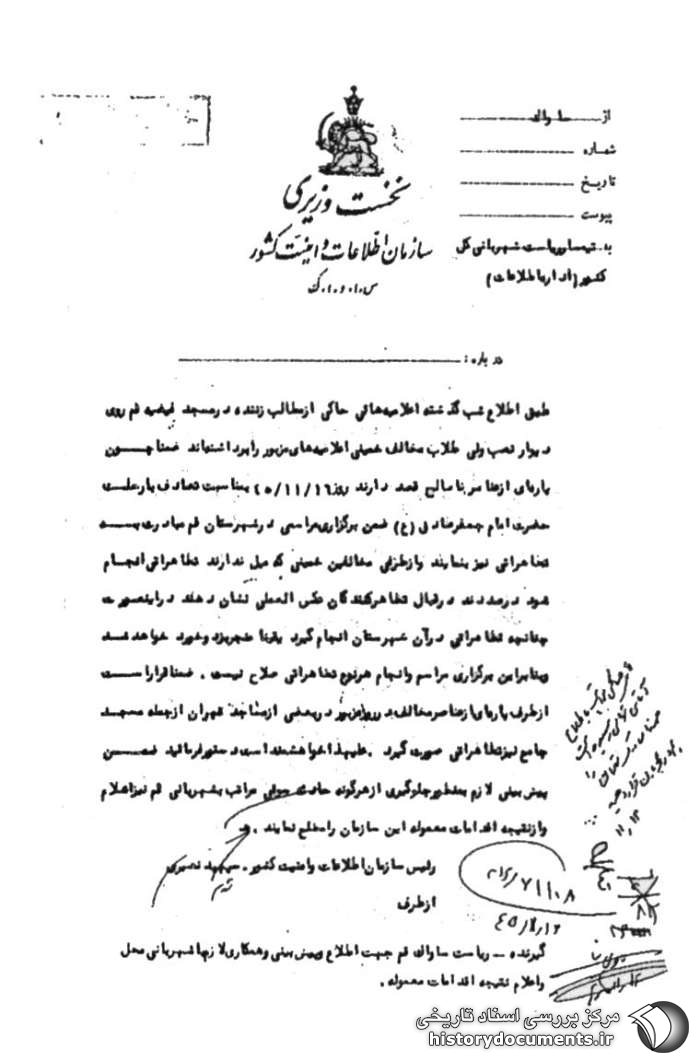 از ساواك
شماره
تاریخ
پیوست
به تیمسار ریاست شهربانی کل
کشور (اداره اطلاعات)
نخست وزیری
سازمان اطلاعات و امنیت کشور
س.ا.و.ا.ک
درباره :
طبق اطلاع شب گذشته اعلامیه‌هائی حاکی از مطالب زننده در مسجد فیضیه قم روی
دیوار نصب ولی طلاب مخالف خمینی اعلامیه‌های مزبور را برداشته‌اند ضمنا چون
پاره‌ای از عناصر ناصالح قصد دارند روز ۴۵/۱۱/۱۶ بمناسبت تصادف با رحلت
حضرت امام جعفرصادق (ع) ضمن برگزاری مراسمی در شهرستان قم مبادرت به
تظاهراتی نیز بنمایند و از طرفی مخالفین خمینی که میل ندارند تظاهراتی انجام
شود درصددند در قبال تظاهرکنندگان عکس العملی نشان دهند در اینصورت
چنانچه تظاهراتی در آن شهرستان انجام گیرد یقینا منجر بزد و خورد خواهد شد
وبنابراین برگزاری مراسم و انجام هرنوع تظاهراتی صلاح نیست . ضمنا قرار است
از طرف پاره‌ای از عناصر مخالف در روز مزبور در بعضی از مساجد تهران از جمله مسجد
جامع نیز تظاهراتی صورت گیرد . علیهذا خواهشمند است دستور فرمائید ضمن
پیش بینی لازم بمنظور جلوگیری از هرگونه حادثه سوئی مراتب بشهربانی قم نیز اعلام
و از نتیجه اقدامات معموله این سازمان را مطلع نمایند .
رئیس سازمان اطلاعات و امنیت کشور . سپهبد نصیری
از طرف
۷۱۱۰۸
گیرنده – ریاست ساواك قم جهت اطلاع و پیش بینی و همکاری لازم با شهربانی محل
و اعلام نتیجه اقدامات معموله .
مرکز بررسی اسناد تاریخی
historydocuments.ir